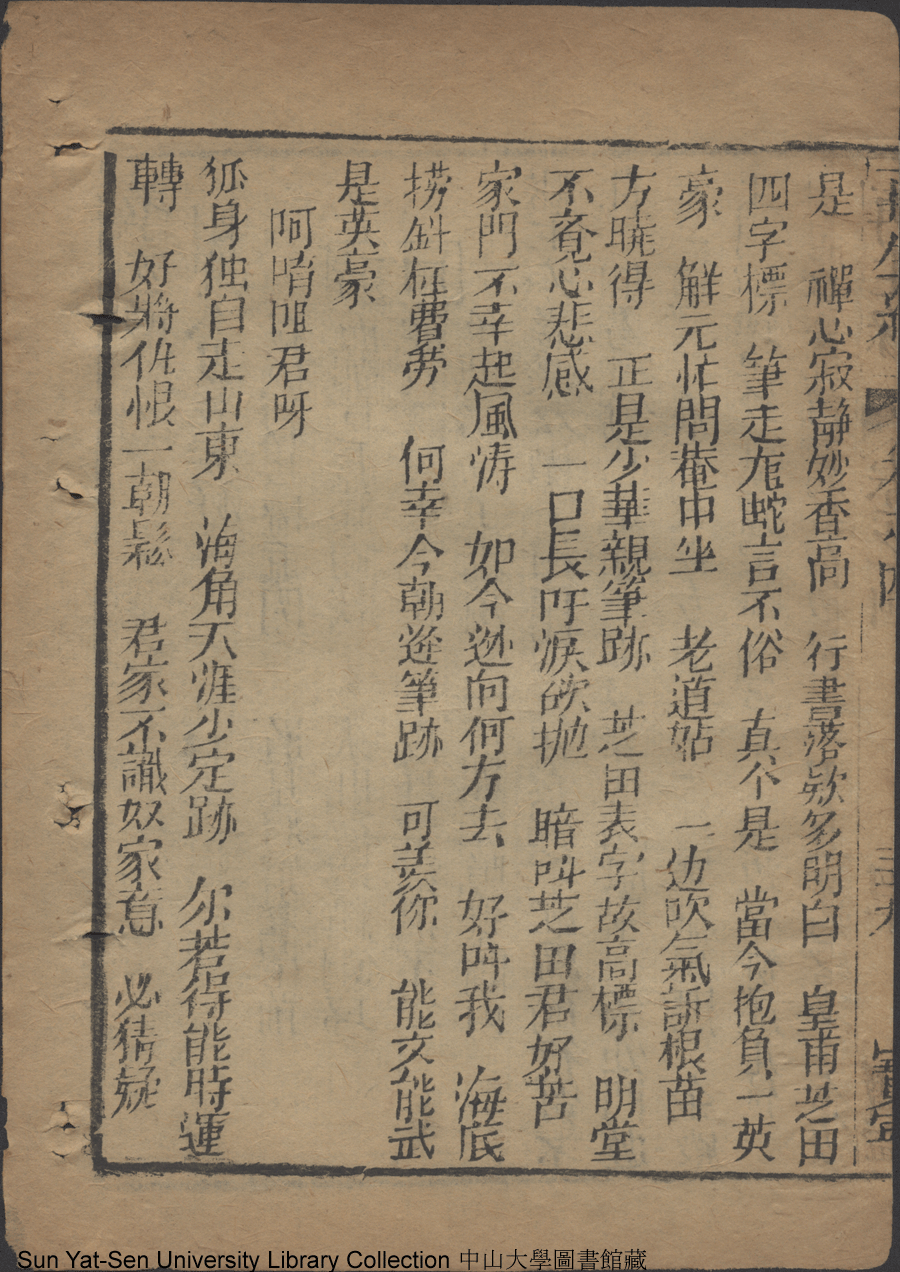 是　禪心寂静妙香高　行書落欵多明白　皇甫芝田
四字標　筆走龙蛇言不俗　真个是　當今抱負一英
豪　觧元忙問菴中坐　老道姑　一边吹氣訴根苗
方曉得　正是少華親筆跡　芝田表字故高標　明堂
不覔心悲感　一口長吁淚欲抛　暗叫芝田君好苦
家門不幸起風涛　如今迯向何方去　好呌我　海底
撈針枉費劳　何幸今朝逢筆跡　可羡你　能文能武
是英豪
阿唷咀君呀
狐身独自走山東　海角天涯少定跡　尔若得能時運
轉　好將仇恨一朝鬆　君家不識奴家意　必猜疑
Sun Yat-Sen University Library Collection 中山大學圖書館藏